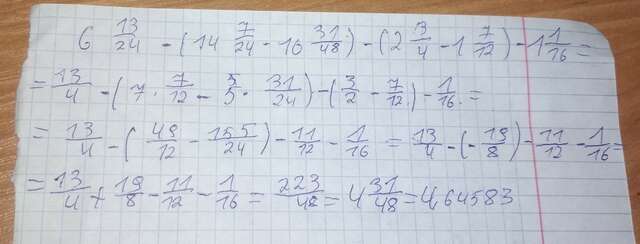 6 13/24 - (14 7/24 - 10 31/48) - (2 3/4 - 1 7/12) - 1 1/16 =
= 13/4 - (7 · 7/12 - 5/5 · 31/24) - (3/2 - 7/12) - 1/16 =
= 13/4 - (49/12 - 155/24) - 11/12 - 1/16 = 13/4 - (-19/8) - 11/12 - 1/16 =
= 13/4 + 19/8 - 11/12 - 1/16 = 223/48 = 4 31/48 = 4,64583